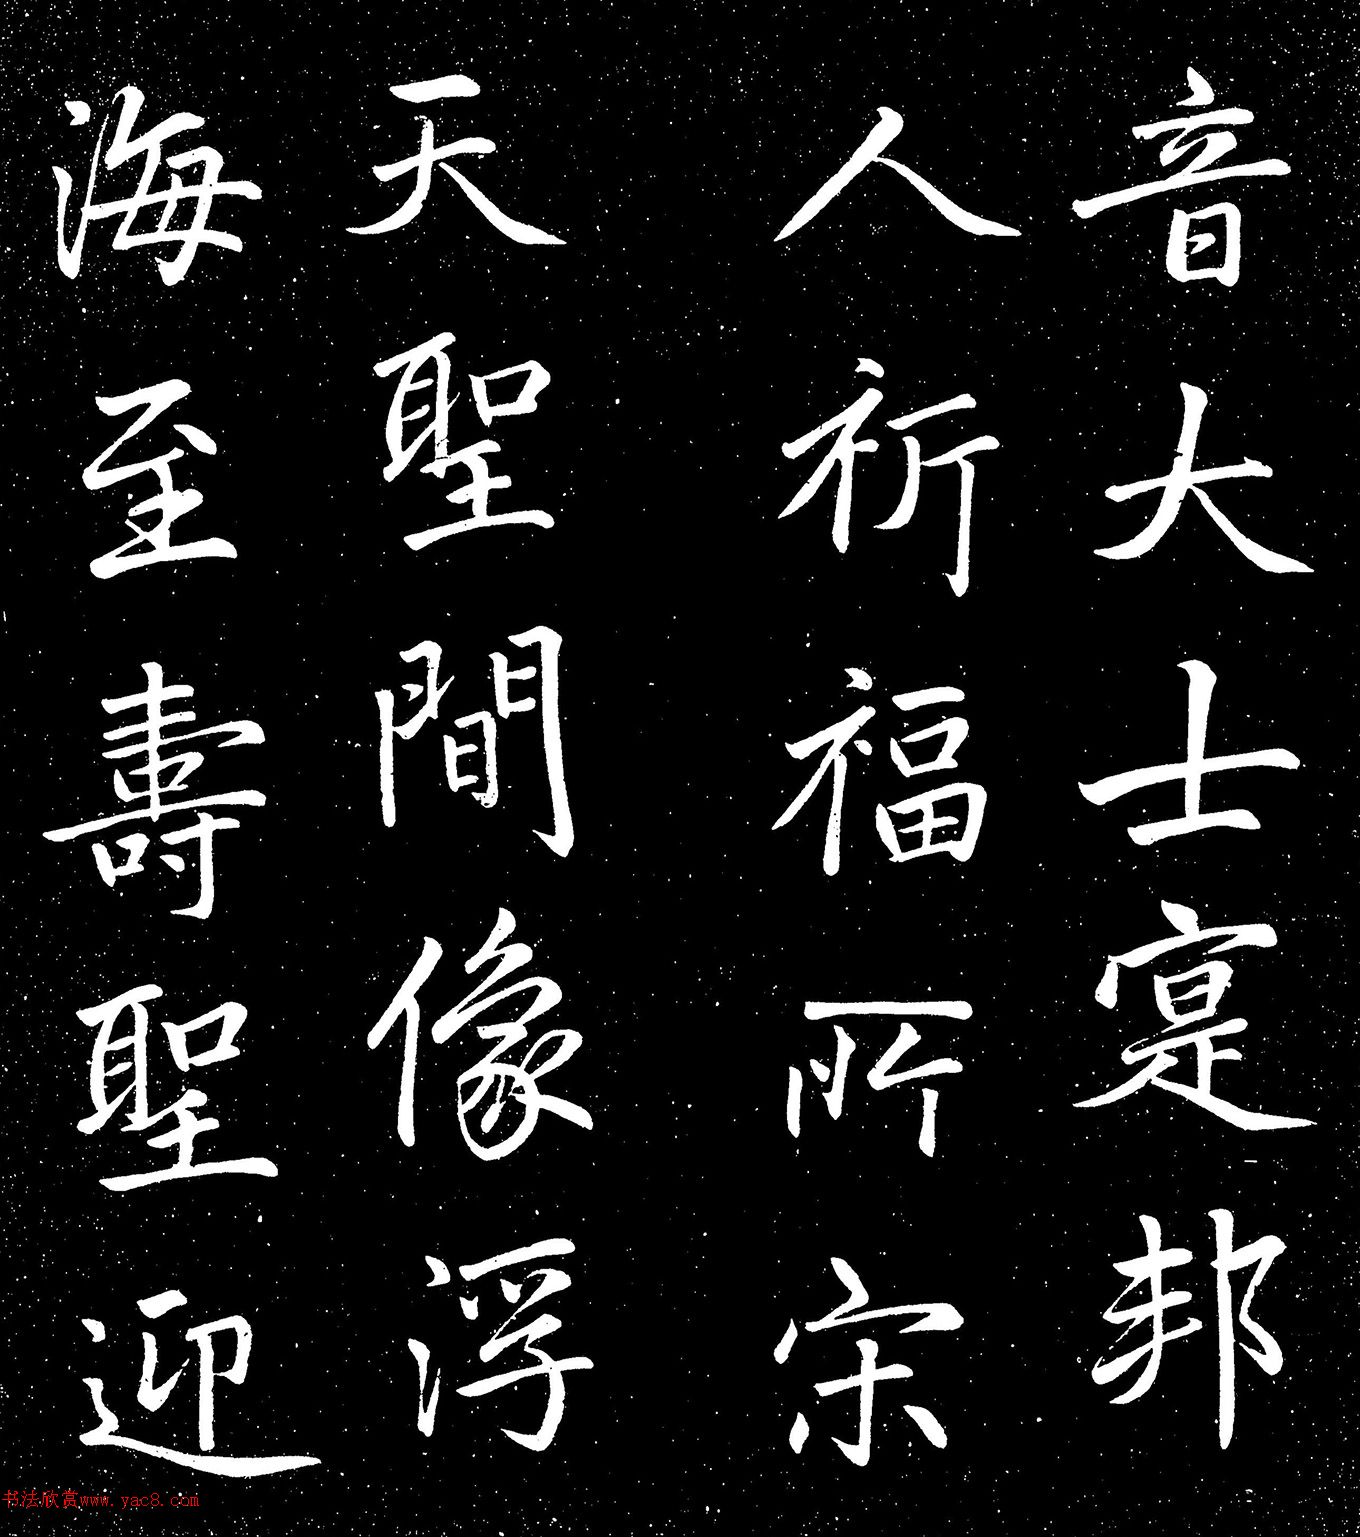 音大士寔邦
人祈福所宋
天聖間像浮
海至壽聖迎
书法欣赏www.yac8.com